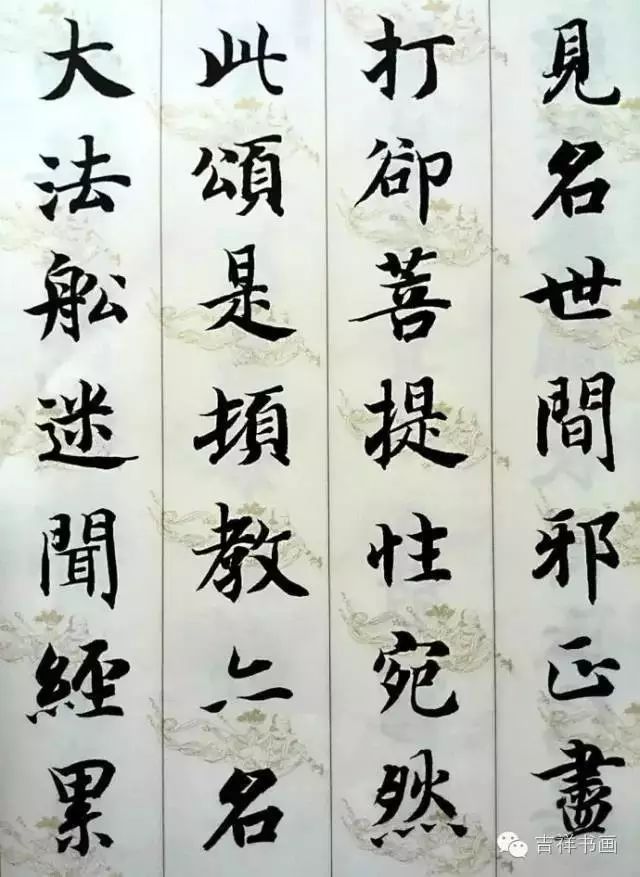 見名世間邪正盡
打卻菩提性宛然
此頌是頓教亦名
大法船迷聞經累
吉祥书画